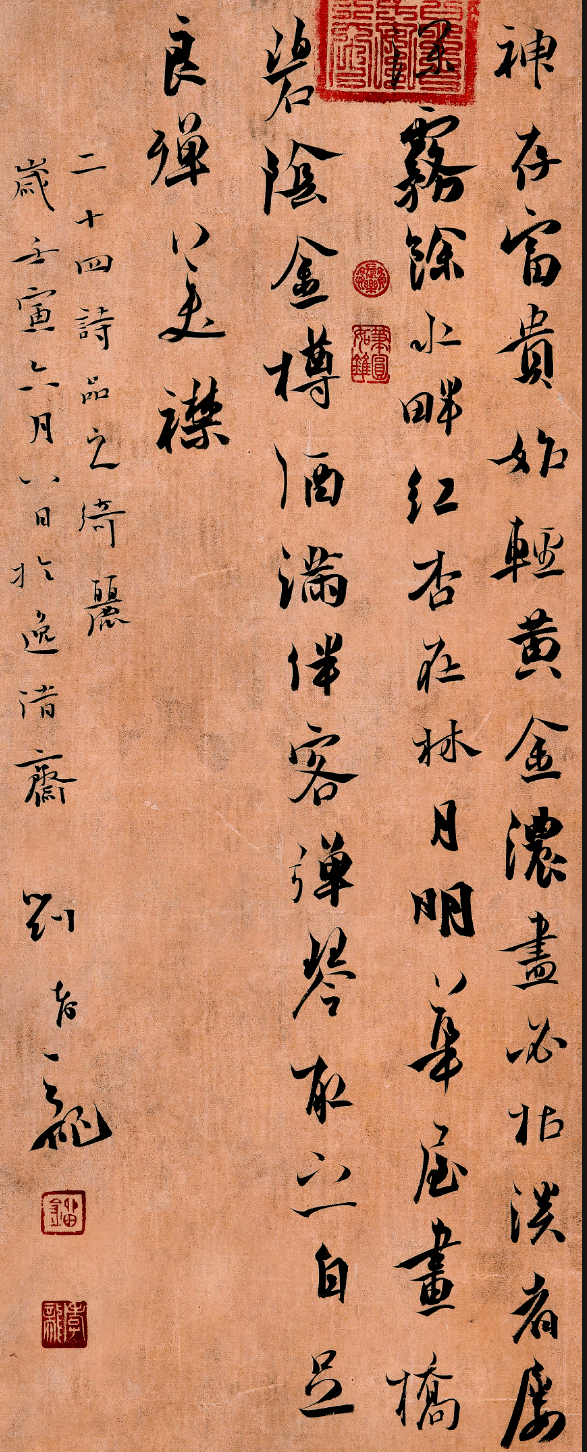 神存富貴始輕黃金濃盡必枯淡者屢
深霧餘水畔紅杏在林月明華屋畫橋
碧陰金樽酒滿伴客彈琴取之自足
良殫美襟
二十四詩品之綺麗
歲壬寅六月八日於逸清齋
劉有龍